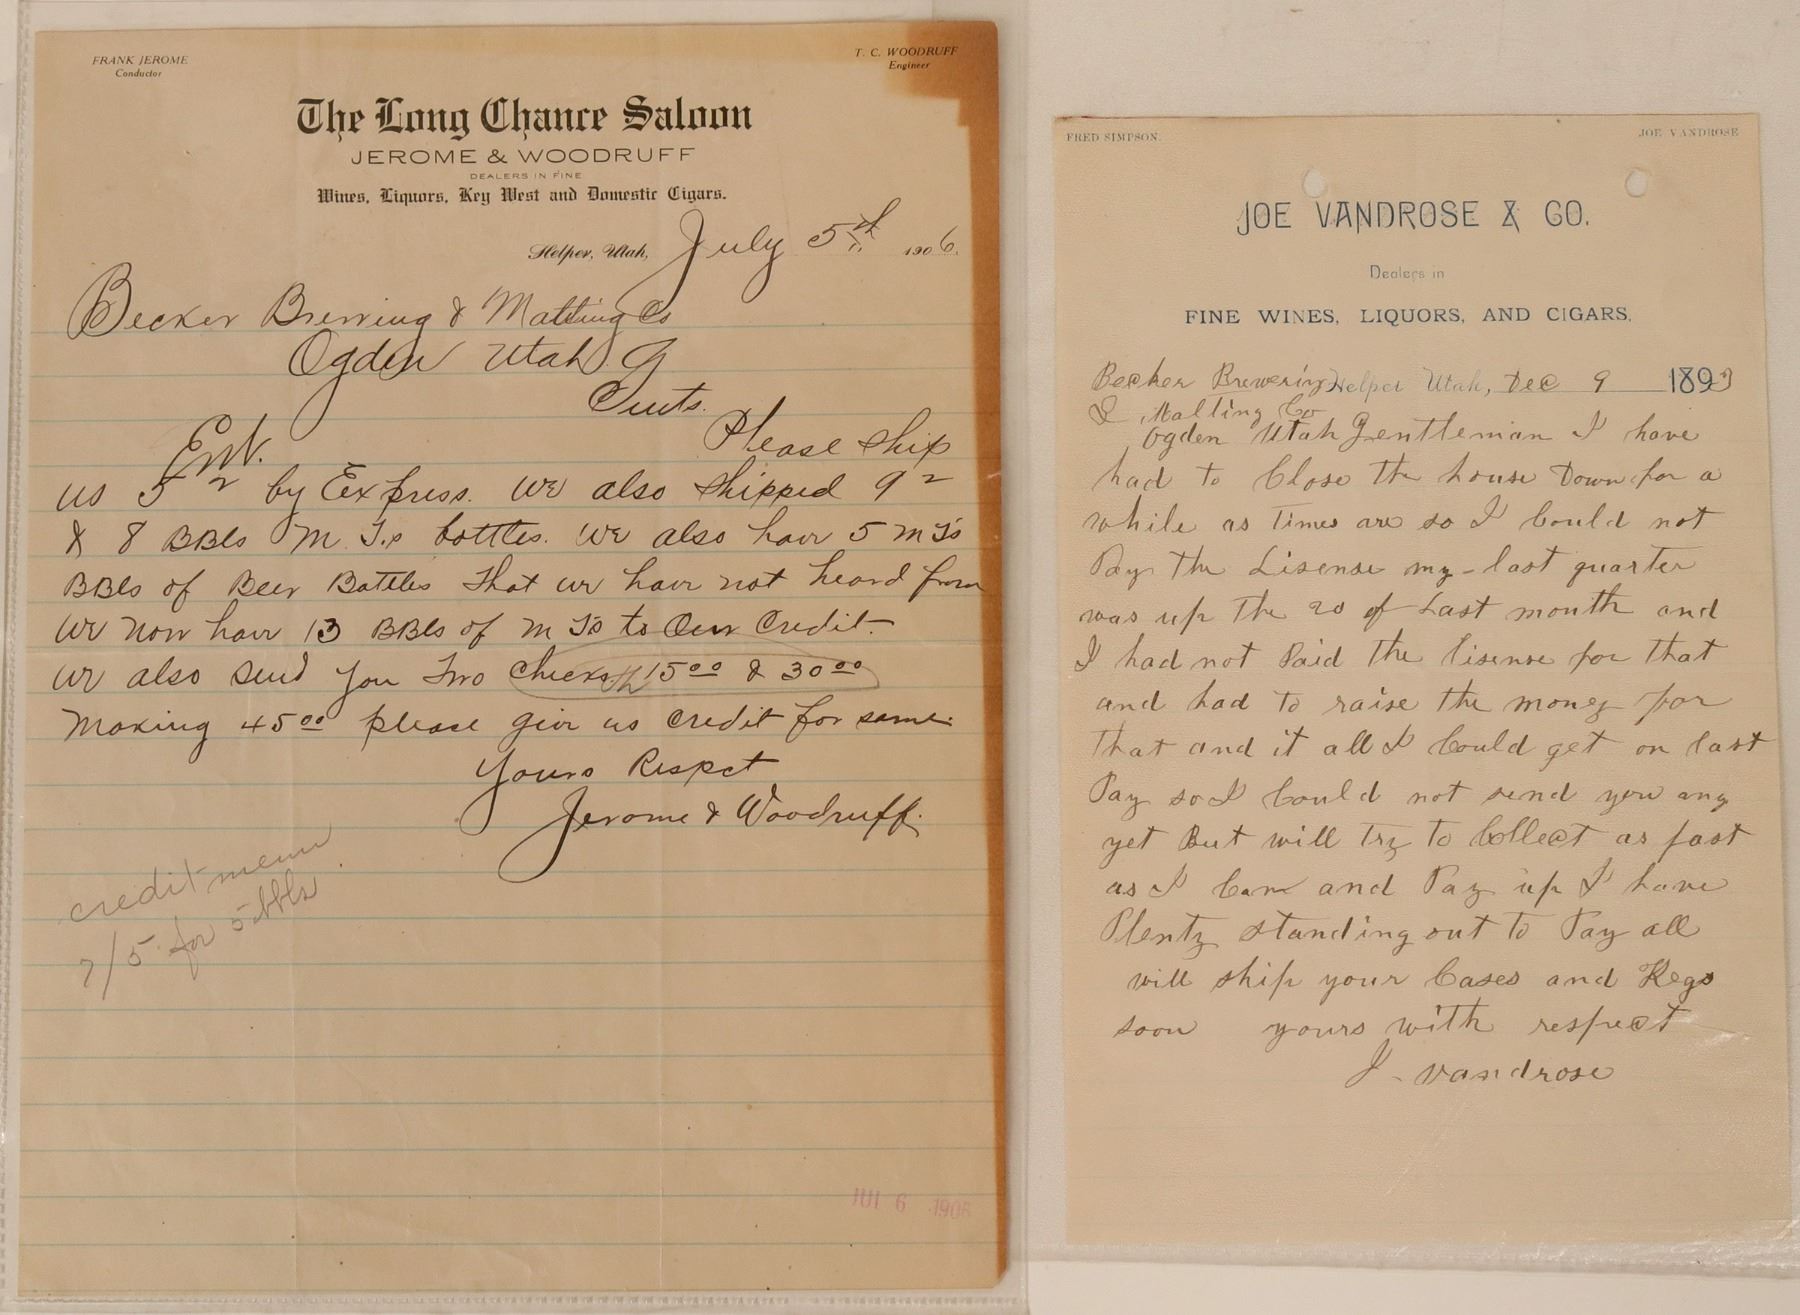 FRANK JEROME
Conductor
T. C. WOODRUFF
Engineer
The Long Chance Saloon
JEROME & WOODRUFF
DEALERS IN FINE
Wines, Liquors, Key West and Domestic Cigars.
Helper, Utah, July 5th 1906.
Becker Brewing & Malting Co
Ogden Utah
Gents.
Ent.
Please ship
us 5 2 by Express. We also shipped 9 2
& 8 BBls M.T.s bottles. We also have 5 M Ts
BBls of Beer Bottles that we have not heard from
We now have 13 BBls of M Ts to Our Credit.
We also send you Two Checks 15 00 & 30 00
Making 45 00 please give us credit for same.
Yours Respct
Jerome & Woodruff.
credit memo
7/5 for 5 bbls
JUL 6 1906
FRED SIMPSON.
JOE VANDROSE
JOE VANDROSE & CO.
Dealers in
FINE WINES, LIQUORS, AND CIGARS.
Becker Brewering Helper Utah, Dec 9 1893
& Malting Co
Ogden Utah Gentleman I have
had to Close the house Down for a
while as Times are so I Could not
Pay the Lisense my - last quarter
was up the 20 of Last month and
I had not Paid the lisense for that
and had to raise the money for
that and it all I Could get on last
Pay so I Could not send you any
yet But will Try to Collect as fast
as I Can and Pay up I have
Plenty standing out to Pay all
will ship your Cases and Kegs
soon yours with respect
J - Vandrose